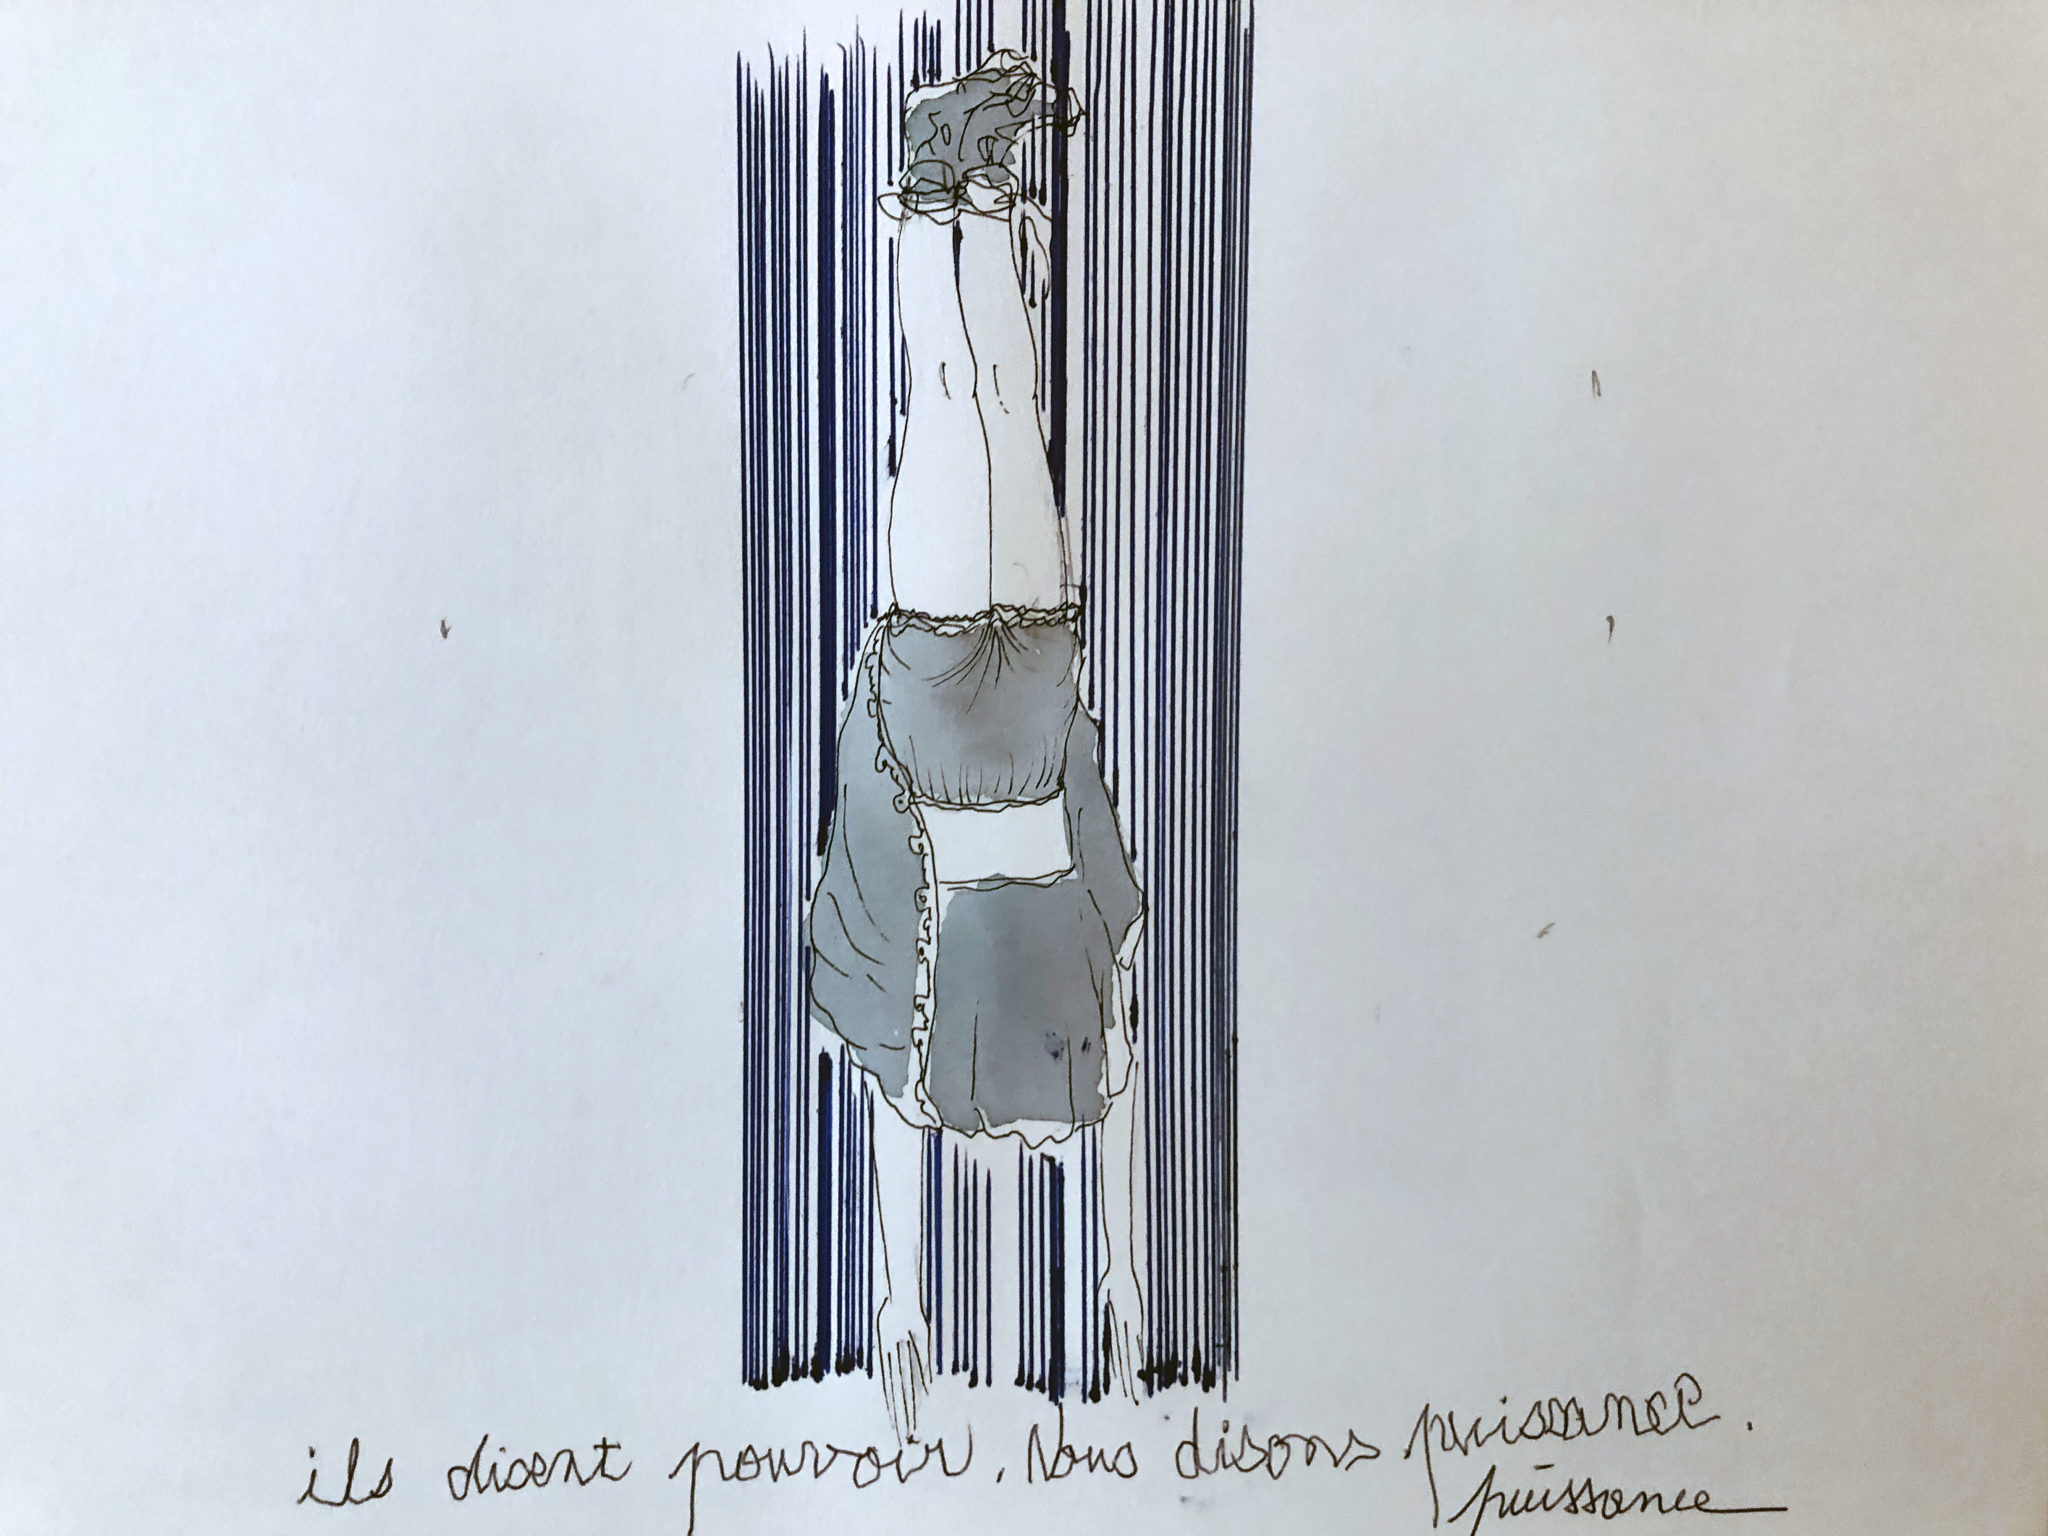 ils disent pouvoir. Nous disons puissance.
puissance